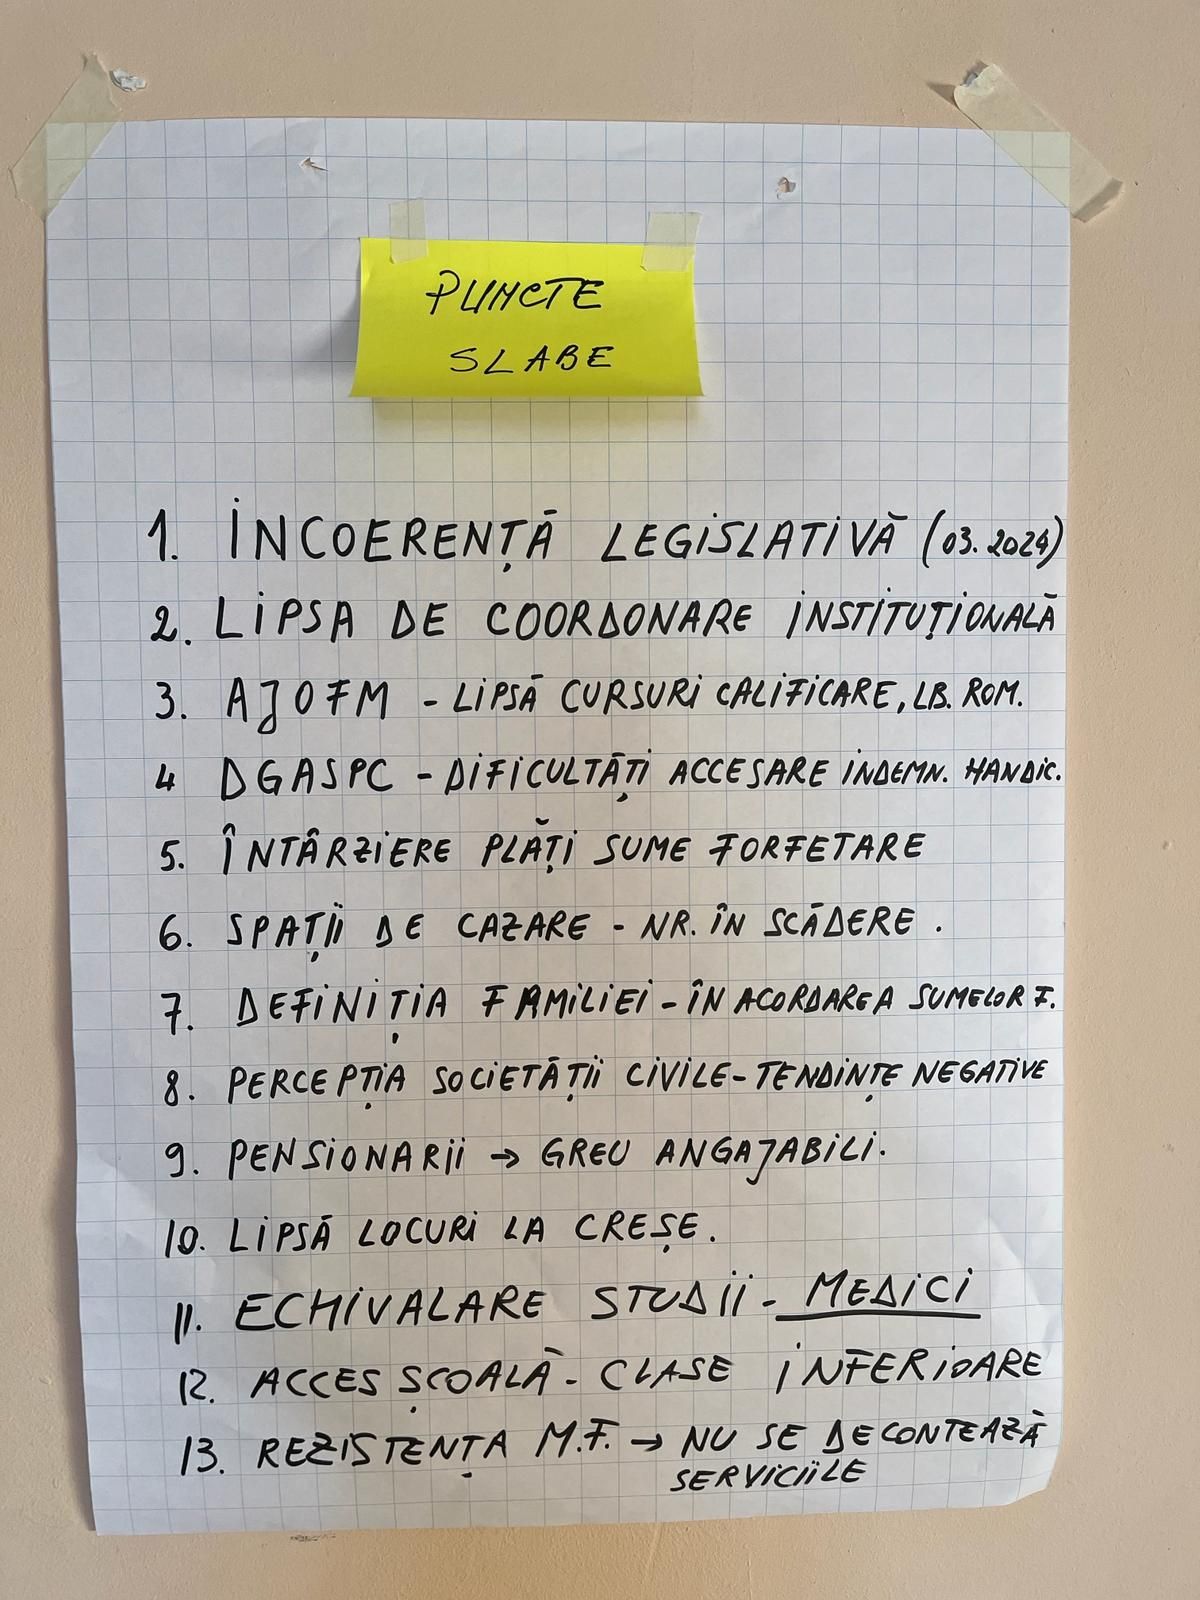 PUNCTE
SLABE
1. INCOERENȚĂ LEGISLATIVĂ (03.2024)
2. LIPSA DE COORDONARE INSTITUȚIONALĂ
3. AJOFM - LIPSĂ CURSURI CALIFICARE, LB. ROM.
4 DGASPC - DIFICULTĂȚI ACCESARE INDEMN. HANDIC.
5. ÎNTÂRZIERE PLĂȚI SUME FORFETARE
6. SPAȚII DE CAZARE - NR. ÎN SCĂDERE.
7. DEFINIȚIA FAMILIEI - ÎN ACORDAREA SUMELOR F.
8. PERCEPȚIA SOCIETĂȚII CIVILE - TENDINȚE NEGATIVE
9. PENSIONARII → GREU ANGAJABILI.
10. LIPSĂ LOCURI LA CREȘE.
11. ECHIVALARE STUDII - MEDICI
12. ACCES ȘCOALĂ - CLASE INFERIOARE
13. REZISTENȚA M.F. → NU SE DECONTEAZĂ
SERVICIILE